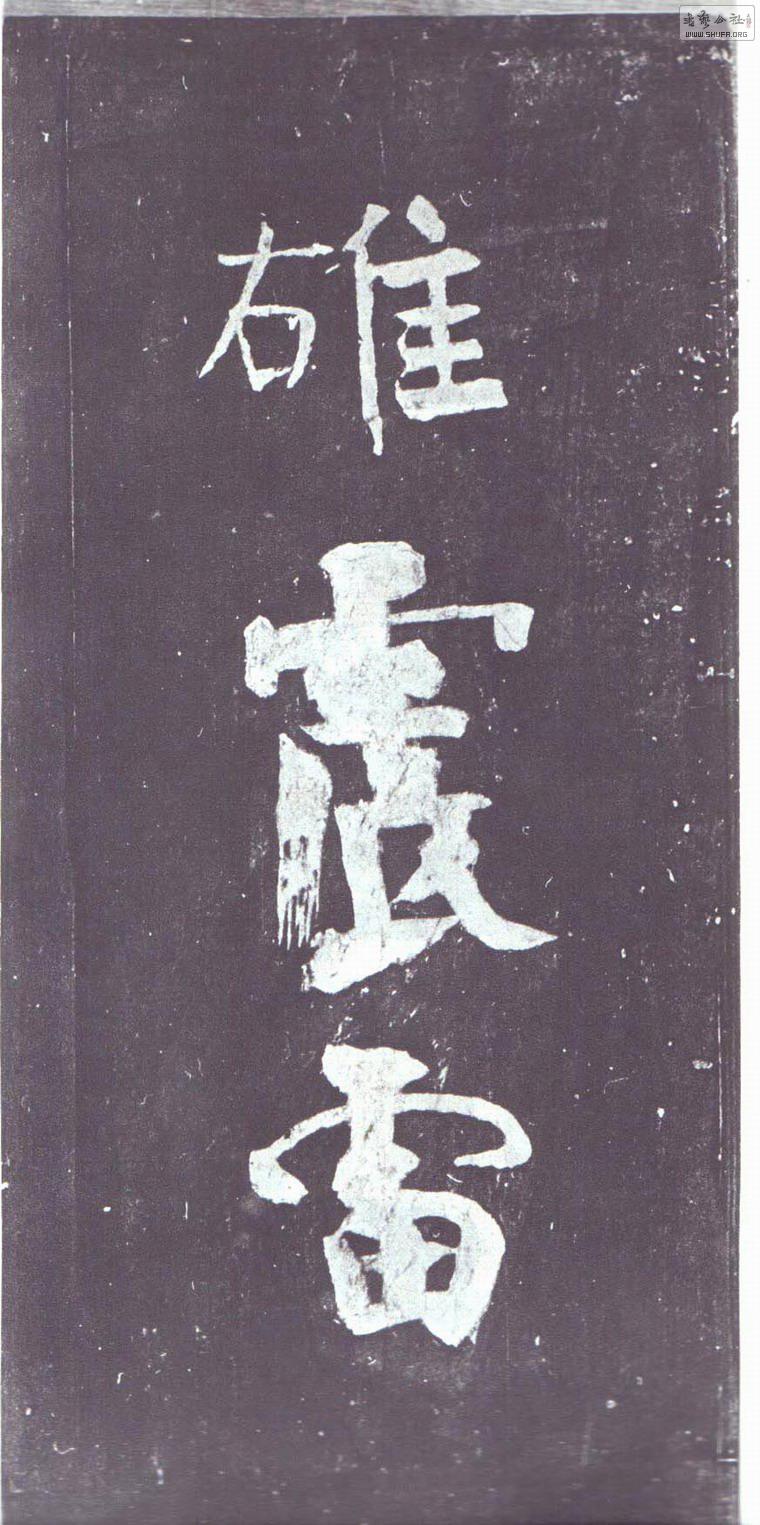 雄震雷
书艺公社
WWW.SHUFA.ORG